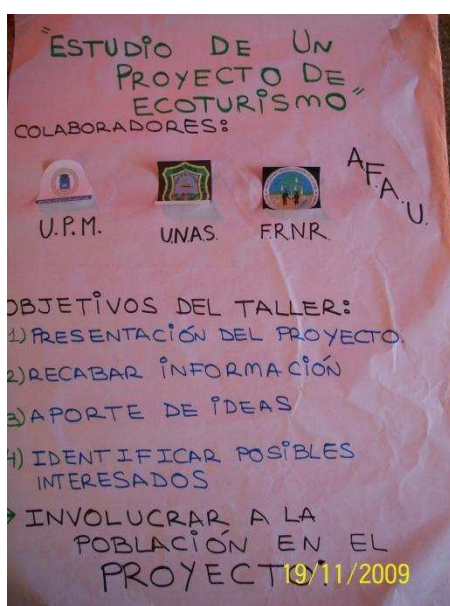 "ESTUDIO DE UN
PROYECTO DE
ECOTURISMO"
COLABORADORES:
A.F.A.U.
U.P.M.
U.N.A.S.
F.R.N.R.
OBJETIVOS DEL TALLER:
1) PRESENTACIÓN DEL PROYECTO.
2) RECABAR INFORMACIÓN
3) APORTE DE IDEAS
4) IDENTIFICAR POSIBLES
INTERESADOS
→ INVOLUCRAR A LA
POBLACIÓN EN EL
PROYECTO.
19/11/2009